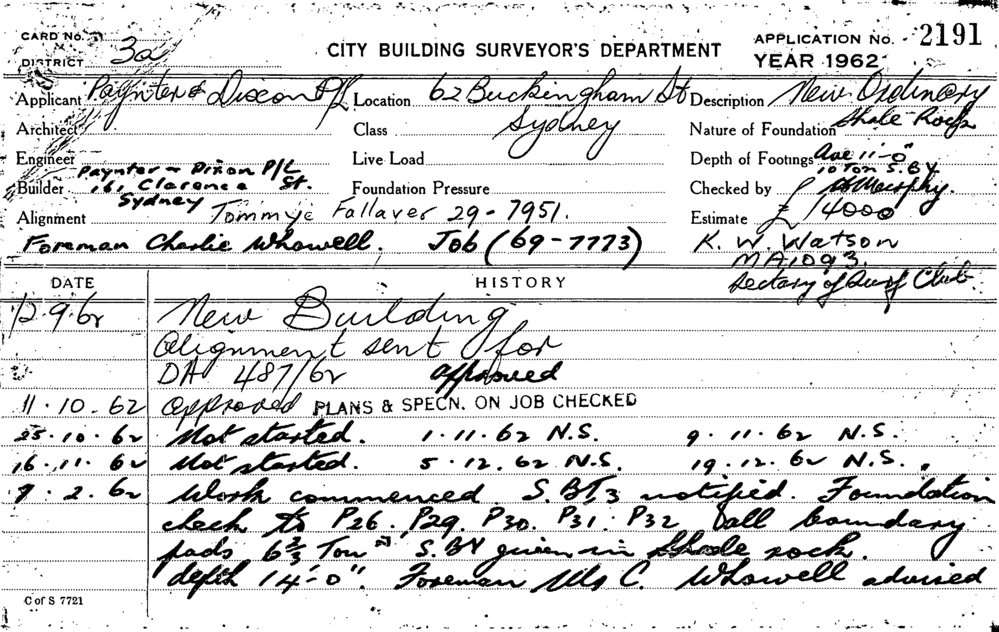 CARD No.
DISTRICT 3a
CITY BUILDING SURVEYOR'S DEPARTMENT
APPLICATION No. 2191
YEAR 1962
Applicant Paynter & Dixon P/L Location 62 Buckingham St Description New Ordinary
Architect Class Sydney Nature of Foundation Shale Rock
Engineer Live Load Depth of Footings Ave 11'-0"
Paynter ~ Dixon P/L 10 Ton S.BY
Builder 161 Clarence St. Foundation Pressure Checked by Murphy.
Sydney
Alignment Tommye Fallaver 29-7951. Estimate £ 14000
Foreman Charlie Whowell. Job (69-7773) K. W. Watson
MA1093.
Sectary of Surf Club.
DATE HISTORY
12.9.62 New Building
Alignment sent for
DA 487/62 approved
11.10.62 Approved PLANS & SPECN. ON JOB CHECKED
25.10.62 Not started. 1.11.62 N.S. 9.11.62 N.S.
16.11.62 Not started. 5.12.62 N.S. 19.12.62 N.S.
7.2.62 Work commenced. S.BT.3 notified. Foundation
check to P26. P29. P30. P31. P32 all boundary
pads 6 2/3 Ton S.BY given in Shale rock.
depth 14'-0". Foreman Mr C. Whowell advised
C of S 7721